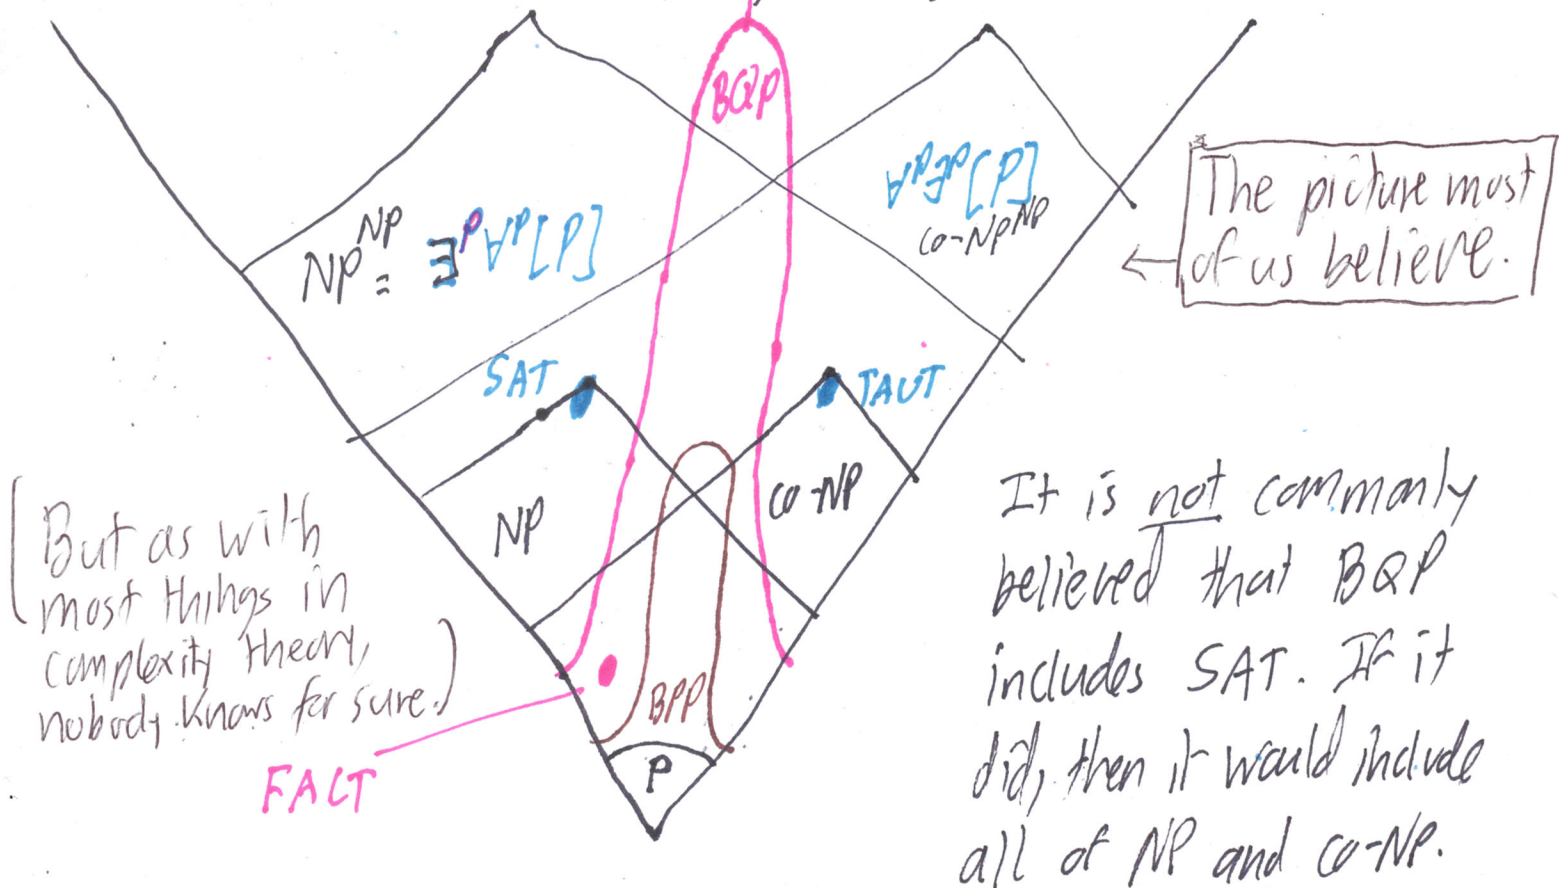 BQP
∀ᵖ∃ᵖ[P]
co-NP^NP
NP^NP = ∃ᵖ∀ᵖ[P]
The picture most
of us believe.
SAT
TAUT
NP
co-NP
(But as with
most things in
complexity theory,
nobody knows for sure.)
It is not commonly
believed that BQP
includes SAT. If it
did, then it would include
all of NP and co-NP.
BPP
P
FACT